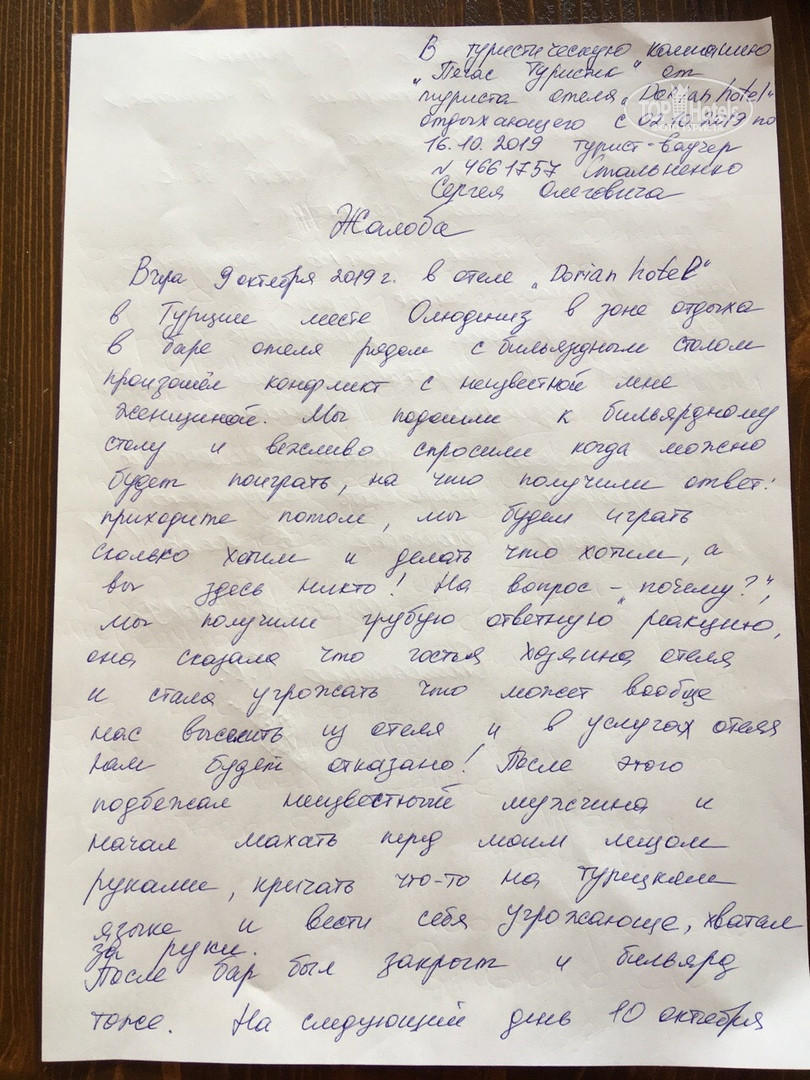 В туристическую компанию
„Пегас Туристик" от
туриста отеля „Dorian hotel"
отдыхающего с 02.10.2019 по
16.10.2019 турист-ваучер
N 4661757 Стальненко
Сергея Олеговича
Жалоба
Вчера 9 октября 2019 г. в отеле „Dorian hotel"
в Турции месте Олюдениз в зоне отдыха
в баре отеля рядом с бильярдным столом
произошёл конфликт с неизвестной мне
женщиной. Мы подошли к бильярдному
столу и вежливо спросили когда можно
будет поиграть, на что получили ответ:
приходите потом, мы будем играть
сколько хотим и делать что хотим, а
вы здесь никто! На вопрос – „почему?",
мы получили грубую ответную реакцию,
она сказала что гостья хозяина отеля
и стала угрожать что может вообще
нас выселить из отеля и в услугах отеля
нам будет отказано! После этого
подбежал неизвестный мужчина и
начал махать перед моим лицом
руками, кричать что-то на турецком
языке и вести себя угрожающе, хватал
за руки.
После бар был закрыт и бильярд
тоже. На следующий день 10 октября
TOP Hotels